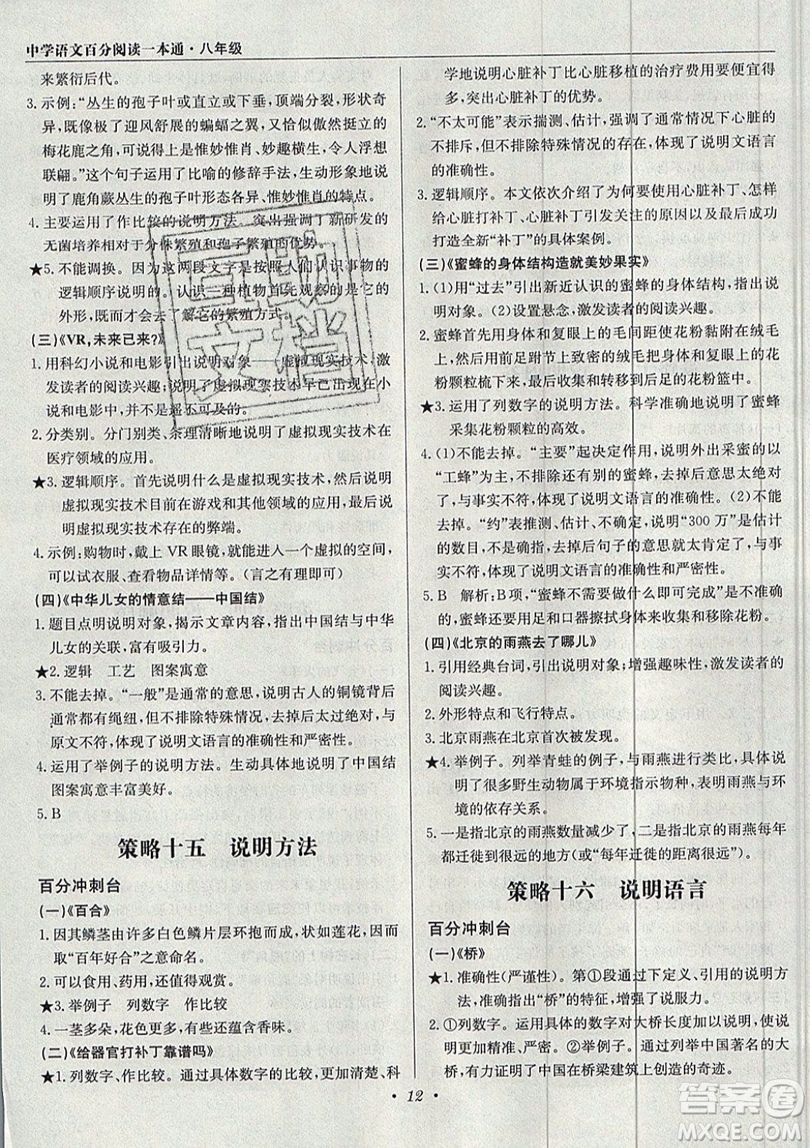 中学语文百分阅读一本通·八年级
来繁衍后代。
3. 示例:“丛生的孢子叶或直立或下垂，顶端分裂，形状奇
异，既像极了迎风舒展的蝙蝠之翼，又恰似傲然挺立的
梅花鹿之角；可谓惟妙惟肖、妙趣横生，令人浮想
联翩。”这个句子运用了比喻的修辞手法，生动形象地说
明了鹿角蕨丛生的孢子叶形态奇异、惟妙惟肖的特点。
4. 主要运用了作比较的说明方法。突出强调了新研发的
无菌培养相对于分体繁殖和孢子繁殖的优势。
★5. 不能调换。因为这两段文字是按照人们认识事物的
逻辑顺序说明的。认识一种植物首先观察的是它的
外形，然后才去了解它的繁殖方式。
(三)《VR，未来已来?》
1. 用科幻小说和电影引出说明对象——虚拟现实技术，激
发读者的阅读兴趣；说明了虚拟现实技术早已出现在小
说和电影中，并不罕见。
2. 分类别。分门别类、条理清晰地说明了虚拟现实技术在
医疗领域的应用。
★3. 逻辑顺序。首先说明什么是虚拟现实技术，然后说明
虚拟现实技术目前在游戏和其他领域的应用，最后说
明虚拟现实技术存在的弊端。
4. 示例:购物时，戴上 VR 眼镜，就进入一个虚拟的空间，
可以试衣服、查看物品详情等。(言之有理即可)
(四)《中华儿女的情意结——中国结》
1. 题目点明说明对象，揭示文章内容，指出中国结与中华
儿女的关联，富有吸引力。
★2. 逻辑　工艺　图案寓意
3. 不能去掉。“一般”是通常的意思，说明古人的铜镜背后
通常都有绳纽，但不排除特殊情况，去掉后太过绝对，与
原文不符，体现了说明文语言的准确性和严密性。
4. 运用了举例子的说明方法。生动具体地说明了中国结
图案寓意丰富美好。
5. B
策略十五　说明方法
百分冲刺台
(一)《百合》
1. 因其鳞茎由许多白色鳞片层环抱而成，状如莲花，因而
取“百年好合”之意命名。
2. 可以食用、药用，还值得观赏。
★3. 举例子　列数字　作比较
4. 一茎多朵，花色丰富，有些还蕴含香味。
(二)《给器官打补丁靠谱吗》
★1. 列数字、作比较。通过具体的比较，更加清楚、科
学地说明心脏补丁比心脏移植的治疗费用要便宜很
多，突出心脏补丁的优势。
2. “不太可能”表示揣测、估计，强调了通常情况下心脏
不排斥，但不排除特殊情况的存在，体现了说明文语言
的准确性。
3. 逻辑顺序。本文依次介绍了为何要使用心脏补丁、怎样
给心脏打补丁、心脏补丁引发关注的原因以及最后成功
打造全新“补丁”的具体案例。
(三)《蜜蜂的身体结构造就美妙果实》
★1. (1)用“过去”引出已有认识的蜜蜂的身体结构与采蜜
的原理。(2)设置悬念，激发读者的阅读兴趣。
2. 蜜蜂首先用身体和复眼上的毛间距使花粉黏附在绒毛
上，其次足部在身体和复眼上的摆动可以将身体上的花
粉颗粒梳下来，最后存放在足后的花粉篮中。
★3. 运用了列数字的说明方法。科学准确地说明了蜜蜂
采集花粉颗粒的高效。
4. (1)不能去掉。“主要”起决定作用，说明外出采蜜的以
“工蜂”为主，不排除一些例外的情况，去掉后与事实不
符，“主要”体现了说明文语言的准确性。(2)不能
去掉。“约”表推测、估计、不确定，说明“300 万”是估计
的数目，不是十分精确，去掉后句子的意思就太肯定
了，与实际情况不符，体现了语言的准确性和严密性。
5. B　解析：B 项，“蜜蜂不需要绒毛的帮助”的表述是错误
的，蜜蜂需要用足和口器擦拭身体来收集和移除花粉。
(四)《北京的雨燕去了哪儿》
1. 引用经典台词，引出说明对象；增强趣味性，激发读者的
阅读兴趣。
2. 外形特点和飞行特点。
3. 北京雨燕在北京首次被发现。
★4. 举例子。列举青蛙的例子，与雨燕进行类比，具体说
明了很多野生动物属于环境指示物种，体现了它们与
环境的依存关系。
5. 一是指北京的雨燕数量减少了，二是指北京的雨燕每年
都迁徙到很远的地方(或“每年迁徙的距离很远”)。
策略十六　说明语言
百分冲刺台
(一)《桥》
★1. 准确性(严谨性)。第①段通过下定义、引用的说明方
法，准确说明“桥”的特征，增强了说服力。
2. ①列数字。运用具体的数字体现了大桥长度之长、规模
之大，使说明更准确。②举例子。通过列举中国著名的大
桥，体现了中国在桥梁建筑上已具有了很大的成就。
12
百助文档
答案圈
MXQE.COM